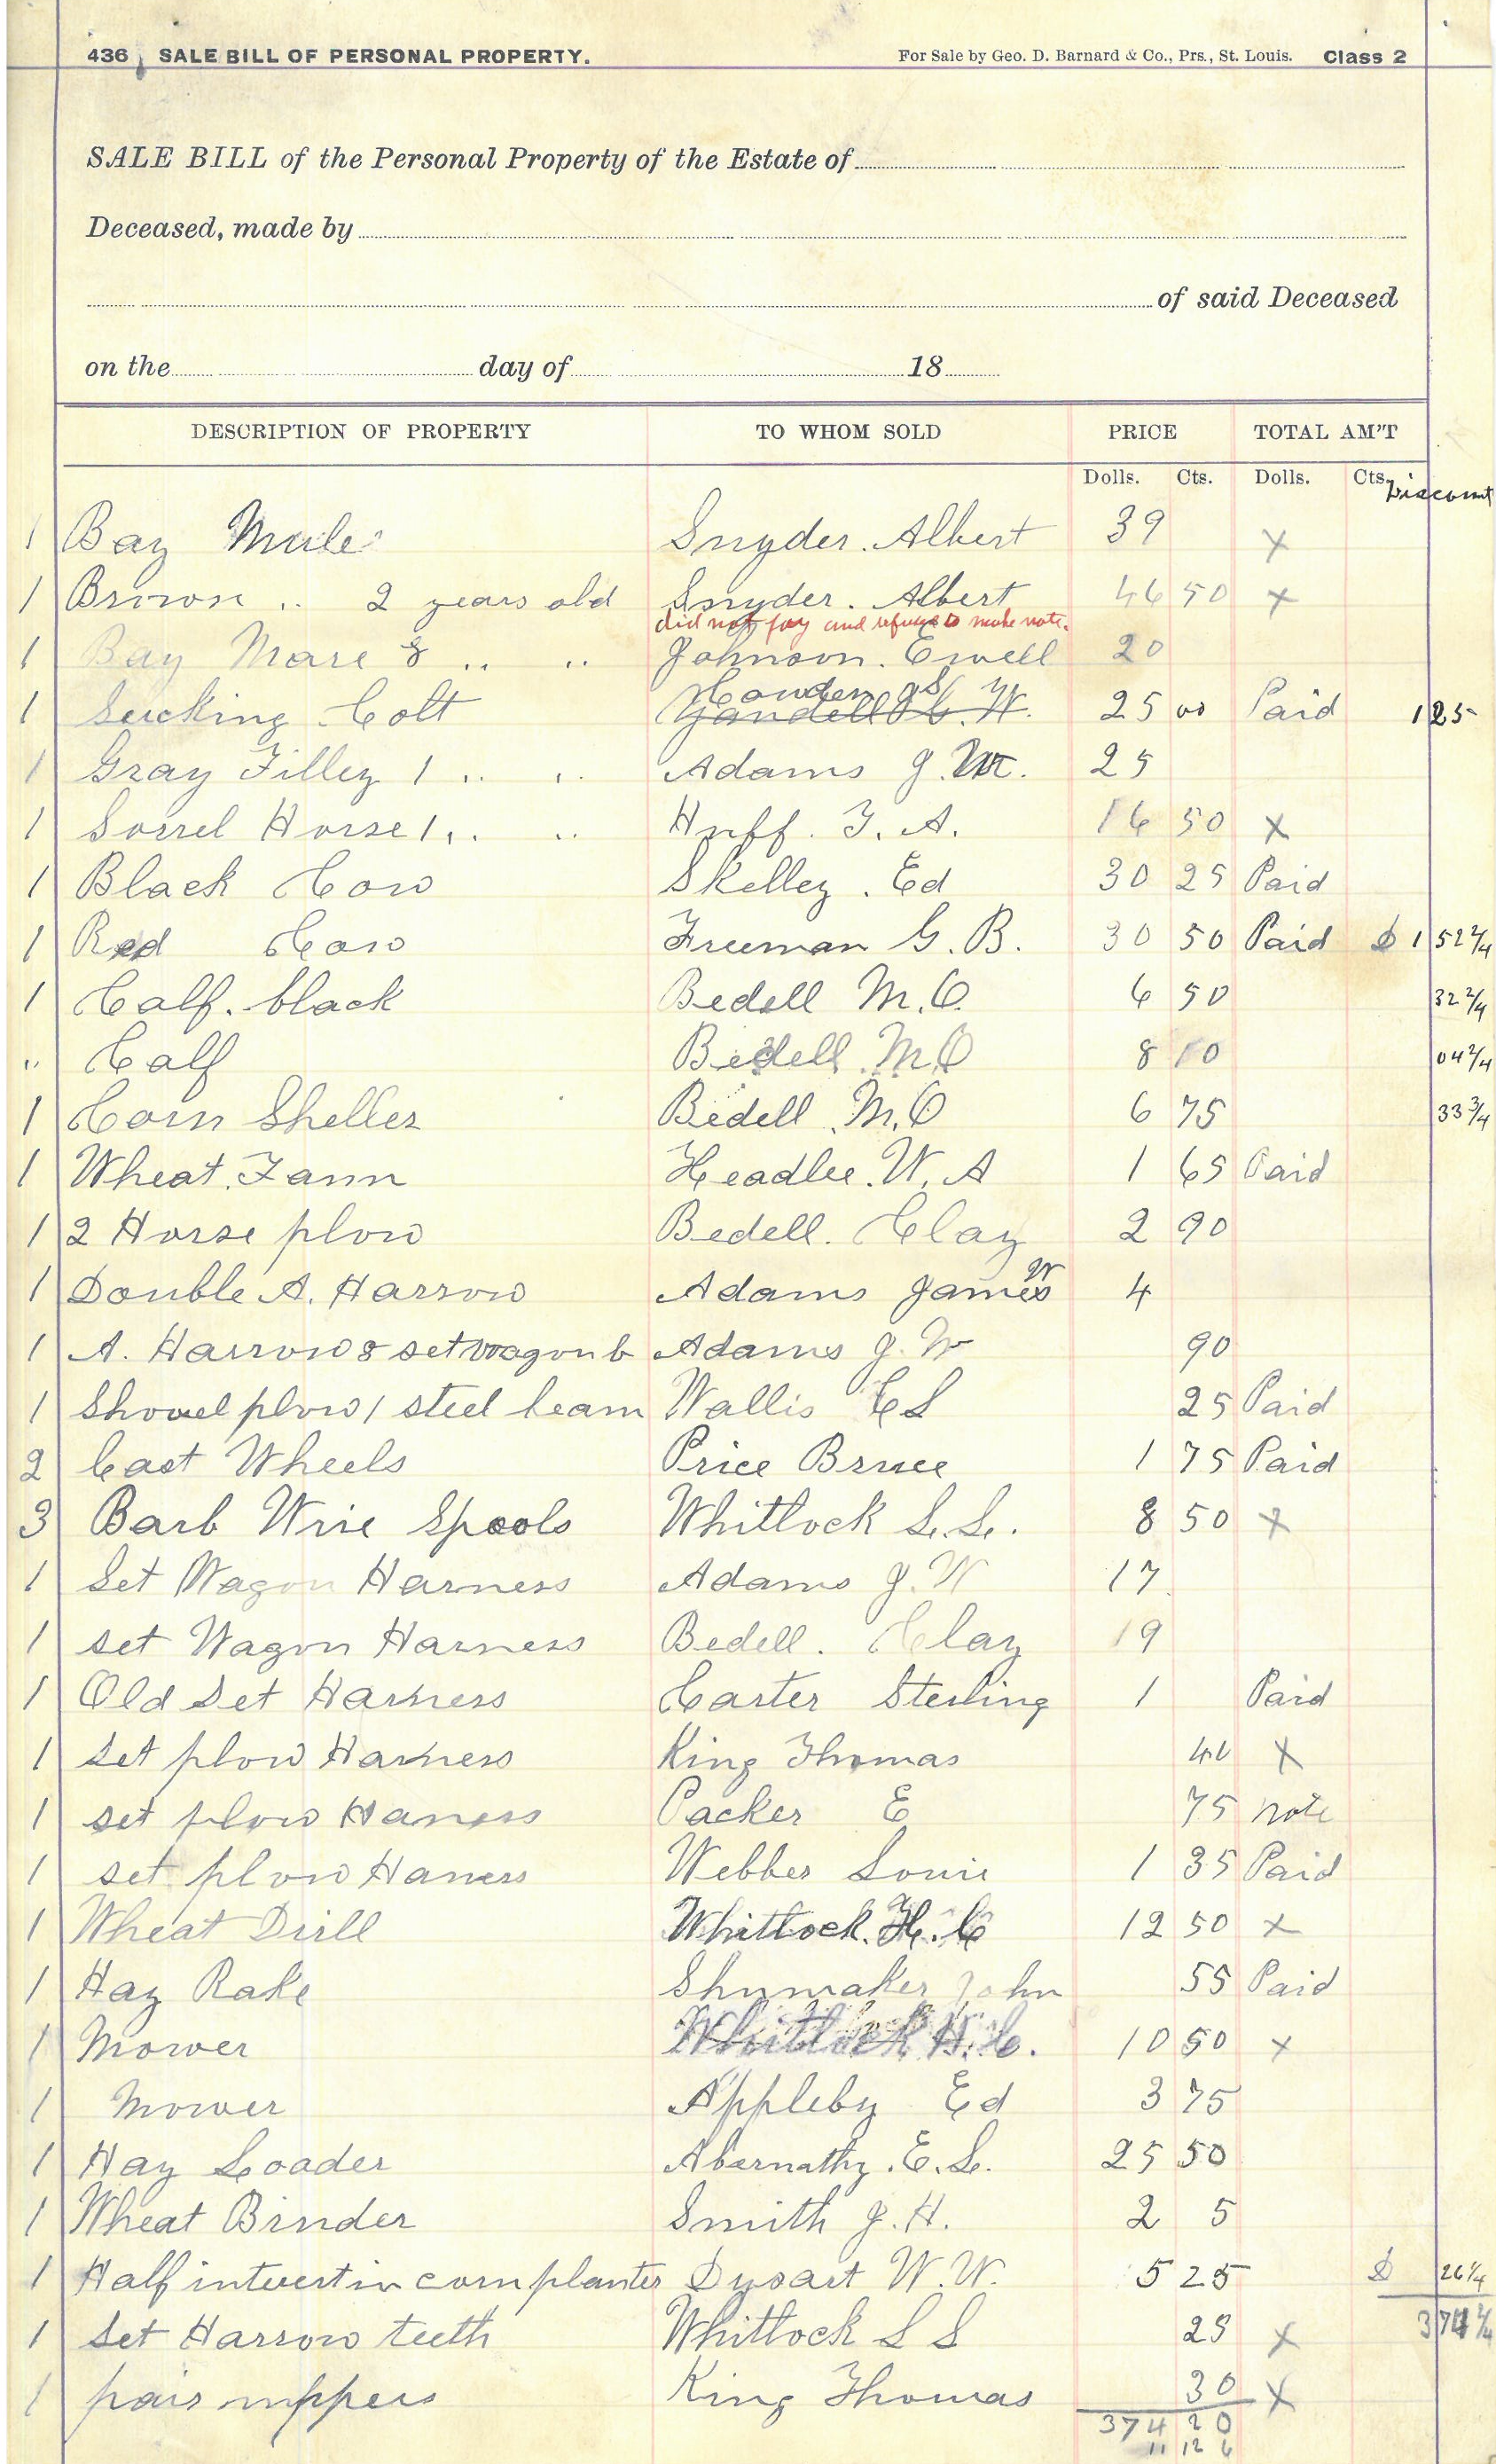 436 SALE BILL OF PERSONAL PROPERTY. For Sale by Geo. D. Barnard & Co., Prs., St. Louis. Class 2
SALE BILL of the Personal Property of the Estate of
Deceased, made by
of said Deceased
on the day of 18
DESCRIPTION OF PROPERTY TO WHOM SOLD PRICE TOTAL AM'T
Dolls. Cts. Dolls. Cts. Discount
1 Bay Mule Snyder. Albert 39 x
1 Brown .. 2 years old Snyder. Albert 46 50 x
did not pay and refuses to make note.
1 Bay Mare 8 .. .. Johnson. Ewell 20
1 Sucking Colt Yandell W. 25 00 Paid 1 25
1 Gray Filley 1 .. .. Adams J. W. 25
1 Sorrel Horse 1 .. .. Huff. T. A. 16 50 x
1 Black Cow Skelley. Ed 30 25 Paid
1 Red Cow Freeman G. B. 30 50 Paid $ 1 52 2/4
1 Calf. black Bedell M. O. 6 50 32 2/4
" Calf Bedell M. O 8 10 04 2/4
1 Corn Sheller Bedell M. O 6 75 33 3/4
1 Wheat. Fann Headlee. W. A 1 65 Paid
1 2 Horse plow Bedell. Clay 2 90
1 Double A. Harrow Adams James W 4
1 A. Harrow & set wagon b Adams J. W 90
1 Shovel plow 1 steel beam Wallis C S 25 Paid
2 Cast Wheels Price Bruce 1 75 Paid
3 Barb Wire Spools Whitlock S. S. 8 50 x
1 Set Wagon Harness Adams J. W 17
1 set Wagon Harness Bedell. Clay 19
1 Old Set Harness Carter Sterling 1 Paid
1 set plow Harness King Thomas 40 x
1 set plow Haness Packer E 75 note
1 set plow Haness Webber Louie 1 35 Paid
1 Wheat Drill Whitlock. H. C 12 50 x
1 Hay Rake Shumaker John 55 Paid
1 Mower Whitlock H. C. 10 50 x
1 Mower Appleby Ed 3 75
1 Hay Loader Abernathy. E. L. 25 50
1 Wheat Binder Smith J. H. 2 5
1 Half interest in corn planter Dysart W. W. 5 25 $ 26 1/4
1 Set Harrow teeth Whitlock S S 25 x 3 74
1 pair nippers King Thomas 30 x
374 20
11 12 6